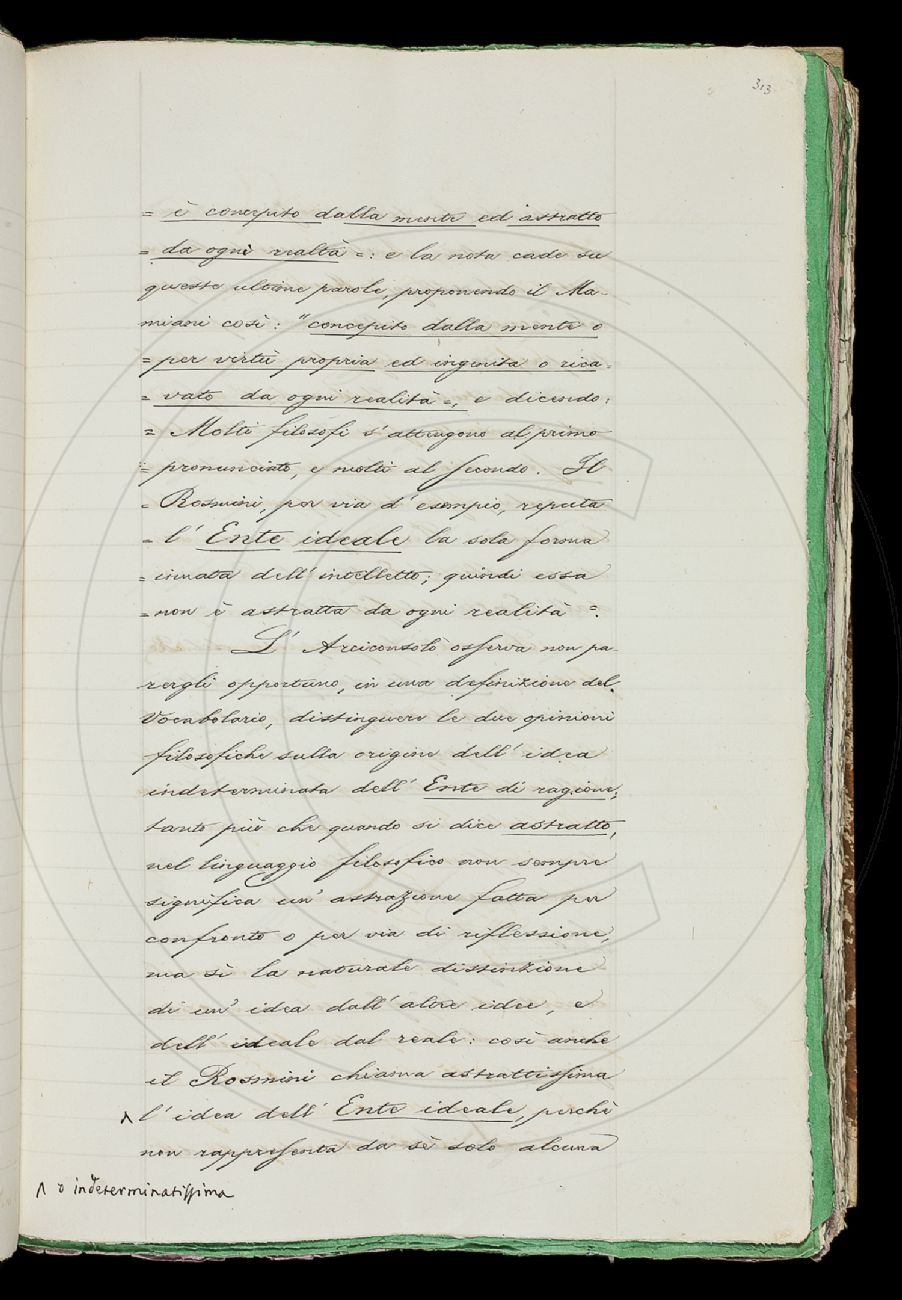 313
= è concepito dalla mente ed astratto
= da ogni realtà =: e la nota cade su
queste ultime parole, proponendo il Ma-
miani così: "concepito dalla mente o
= per virtù propria ed ingenita o rica-
= vato da ogni realità =, e dicendo:
= Molti filosofi s'attengono al primo
= pronunciato, e molti al secondo. Il
= Rosmini, per via d'esempio, reputa
= l'Ente ideale la sola forma
= innata dell'intelletto; quindi essa
= non è astratta da ogni realità =.
L'Arciconsolo osserva non pa-
rergli opportuno, in una definizione del
Vocabolario, distinguere le due opinioni
filosofiche sulla origine dell'idea
indeterminata dell'Ente di ragione;
tanto più che quando si dice astratto,
nel linguaggio filosofico non sempre
significa un'astrazione fatta per
confronto o per via di riflessione,
ma sì la naturale distinzione
di un'idea dall'altre idee, e
dell'ideale dal reale: così anche
il Rosmini chiama astrattissima
^ l'idea dell'Ente ideale, perchè
non rappresenta da sè solo alcuna
^ o indeterminatissima